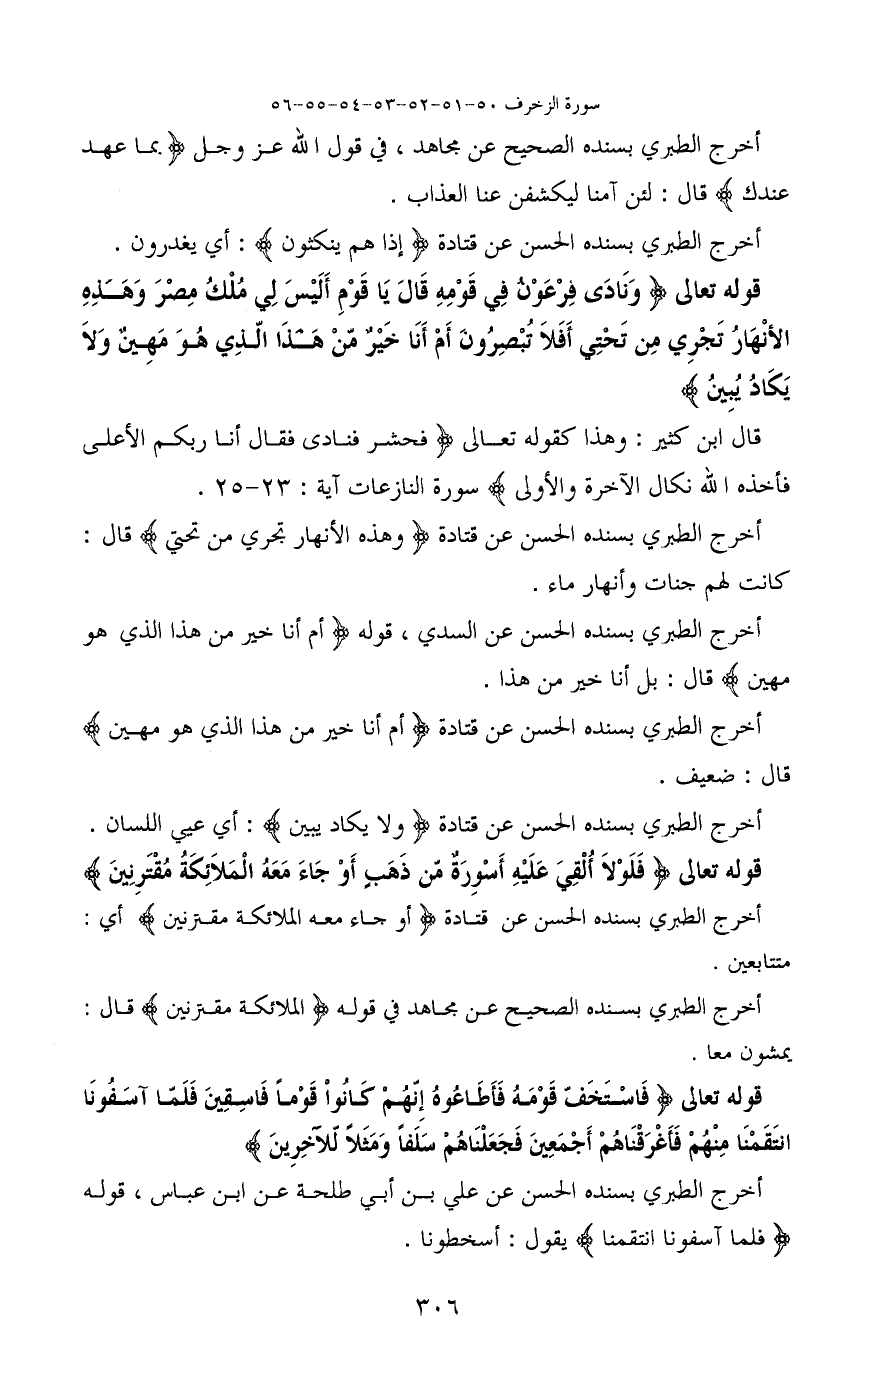 سورة الزخرف ٥٠-٥١-٥٢-٥٣-٥٤-٥٥-٥٦
أخرج الطبري بسنده الصحيح عن مجاهد ، في قول الله عز وجل ﴿ بما عهد
عندك ﴾ قال : لئن آمنا ليكشفن عنا العذاب .
أخرج الطبري بسنده الحسن عن قتادة ﴿ إذا هم ينكثون ﴾ : أي يغدرون .
قوله تعالى ﴿ وَنَادَى فِرْعَوْنُ فِي قَوْمِهِ قَالَ يَا قَوْمِ أَلَيْسَ لِي مُلْكُ مِصْرَ وَهَـَذِهِ
الأنْهَارُ تَجْرِي مِن تَحْتِي أَفَلاَ تُبْصِرُونَ أَمْ أَنَا خَيْرٌ مّنْ هَـَذَا الّذِي هُوَ مَهِينٌ وَلاَ
يَكَادُ يُبِينُ ﴾
قال ابن كثير : وهذا كقوله تعالى ﴿ فحشر فنادى فقال أنا ربكم الأعلى
فأخذه الله نكال الآخرة والأولى ﴾ سورة النازعات آية : ٢٣-٢٥ .
أخرج الطبري بسنده الحسن عن قتادة ﴿ وهذه الأنهار تجري من تحتي ﴾ قال :
كانت لهم جنات وأنهار ماء .
أخرج الطبري بسنده الحسن عن السدي ، قوله ﴿ أم أنا خير من هذا الذي هو
مهين ﴾ قال : بل أنا خير من هذا .
أخرج الطبري بسنده الحسن عن قتادة ﴿ أم أنا خير من هذا الذي هو مهين ﴾
قال : ضعيف .
أخرج الطبري بسنده الحسن عن قتادة ﴿ ولا يكاد يبين ﴾ : أي عيي اللسان .
قوله تعالى ﴿ فَلَوْلاَ أُلْقِيَ عَلَيْهِ أَسْوِرَةٌ مّن ذَهَبٍ أَوْ جَاءَ مَعَهُ الْمَلاَئِكَةُ مُقْتَرِنِينَ ﴾
أخرج الطبري بسنده الحسن عن قتادة ﴿ أو جاء معه الملائكة مقترنين ﴾ أي :
متتابعين .
أخرج الطبري بسنده الصحيح عن مجاهد في قوله ﴿ الملائكة مقترنين ﴾ قال :
يمشون معا .
قوله تعالى ﴿ فَاسْتَخَفّ قَوْمَهُ فَأَطَاعُوهُ إِنّهُمْ كَانُواْ قَوْماً فَاسِقِينَ فَلَمّا آسَفُونَا
انتَقَمْنَا مِنْهُمْ فَأَغْرَقْنَاهُمْ أَجْمَعِينَ فَجَعَلْنَاهُمْ سَلَفاً وَمَثَلاً لّلآخِرِينَ ﴾
أخرج الطبري بسنده الحسن عن علي بن أبي طلحة عن ابن عباس ، قوله
﴿ فلما آسفونا انتقمنا ﴾ يقول : أسخطونا .
٣٠٦